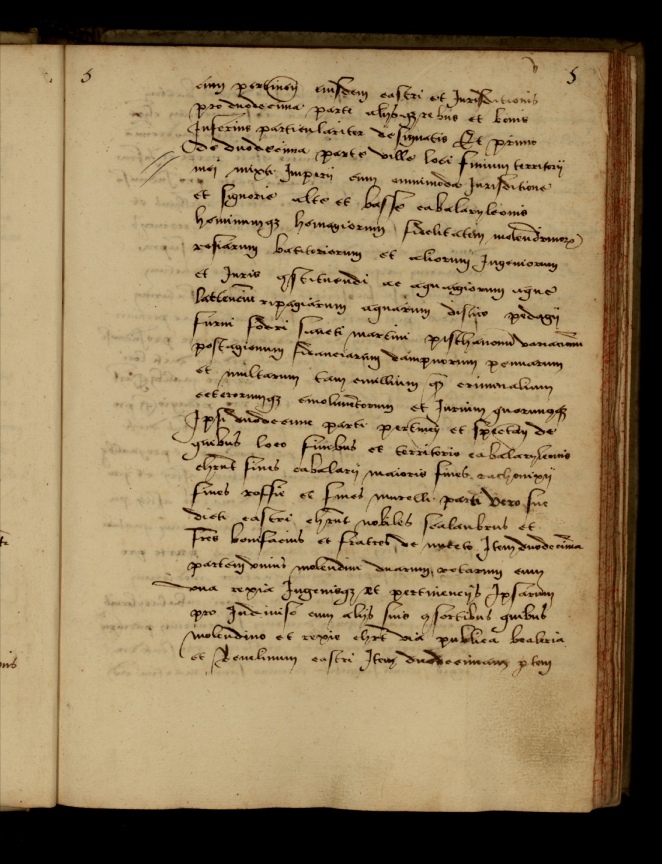 5 5
cum pertinen eiusdem castri et Jurisditionis
pro duodecima parte alijsqz rebus et bonis
Inferius particulariter designatis Et primo
de duodecima parte ville loci finium territorij
meri mixti Imperij cum omnimoda Jurisditione
et signorie alte et basse cabalaryleonis
hominumqz homagiorum fidelitatum molendinorz
resiarum batiteriorum et aliorum Ingeniorum
et Juris constituendi ac aquagiorum aque
ripagiarum aquarum pedagij
furni fodri sancti martini
postagionum fidanciarum dampnorum penarum
et multarum tam civillium qz criminalium
ceterorumqz emolumtorum et Jurium quorumqz
Ipsi duodecime parti pertinen et spectan de
quibus loco finibus et territorio cabalarylenis
chrnt fines cabalarij maioris fines rachonixij
fines roffie et fines murelli parti vero sue
dicti castri chrnt nobiles et
bonifacius et fratres de Item duodecima
partem vnius molendini duarum rotarum cum
vna rexia Ingenijsqz et pertinencijs Ipsarum
pro Indiuiso cum alijs suis consortibus quibus
molendino et rexie chrt via publica bealeria
et Reuelinum castri Item duodecimam ptem